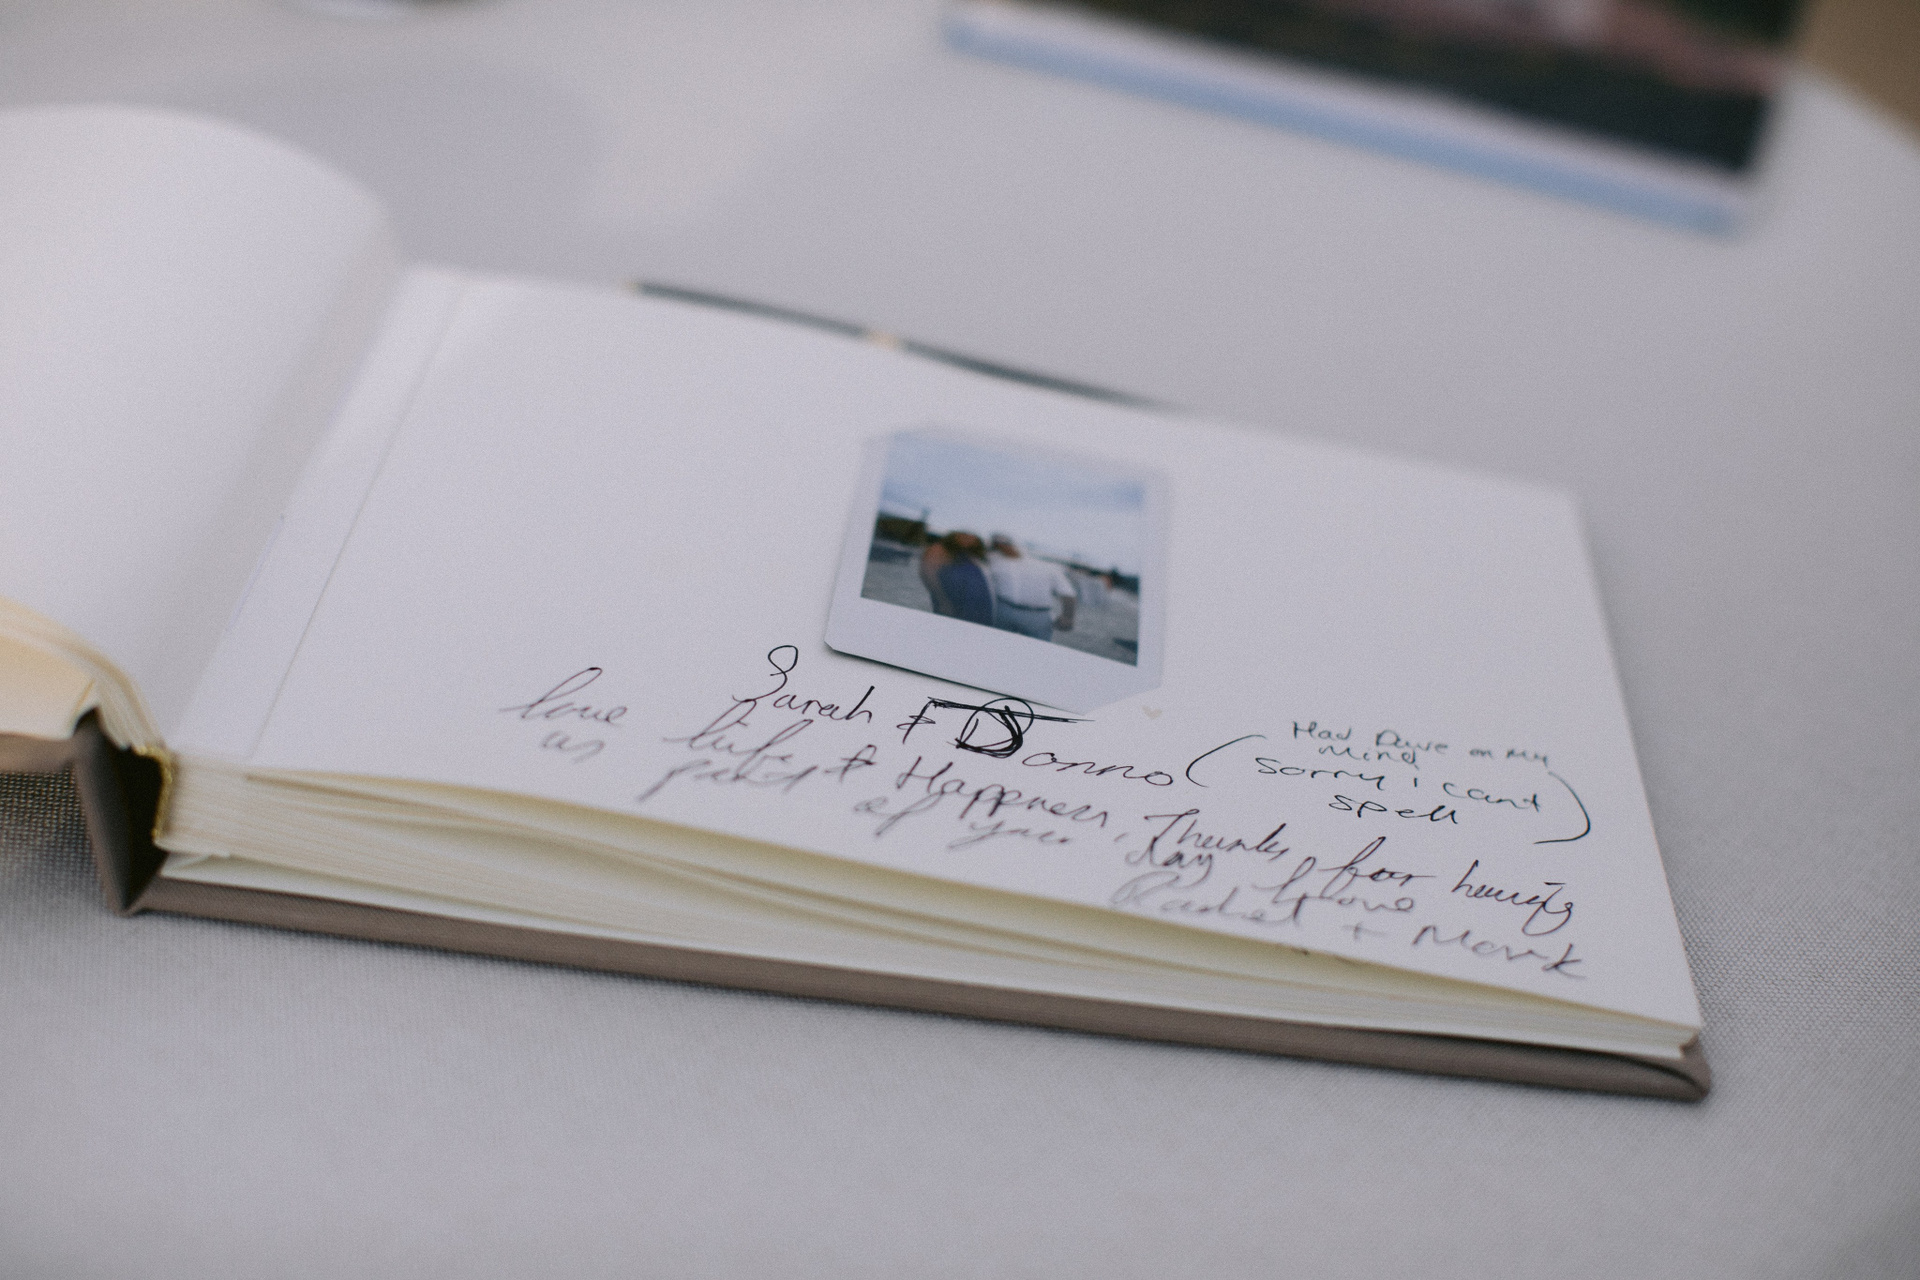 Sarah & Donno
(Had Dave on my
mind
Sorry i cant
spell)
love life & Happness, Thanks for having
us part of your day
love
Rachel + Mark